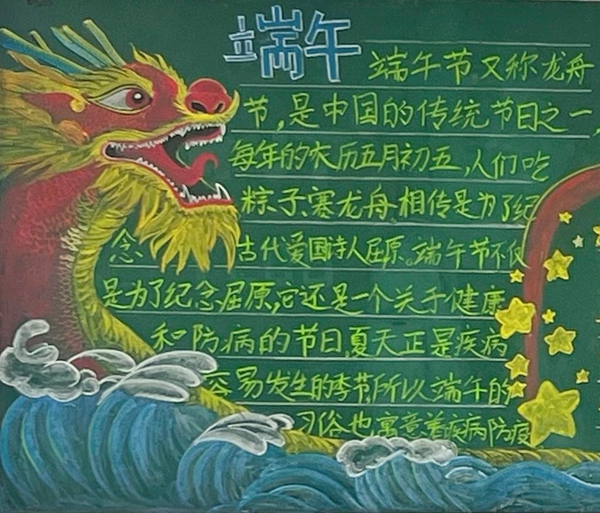 端午
端午节,又称龙舟
节,是中国的传统节日之一,
每年的农历五月初五,人们吃
粽子、赛龙舟,相传是为了纪
念 古代爱国诗人屈原。端午节不仅
是为了纪念屈原,它还是一个关于健康
和防病的节日,夏天正是疾病
容易发生的季节,所以端午的
习俗也寓意着疾病防疫